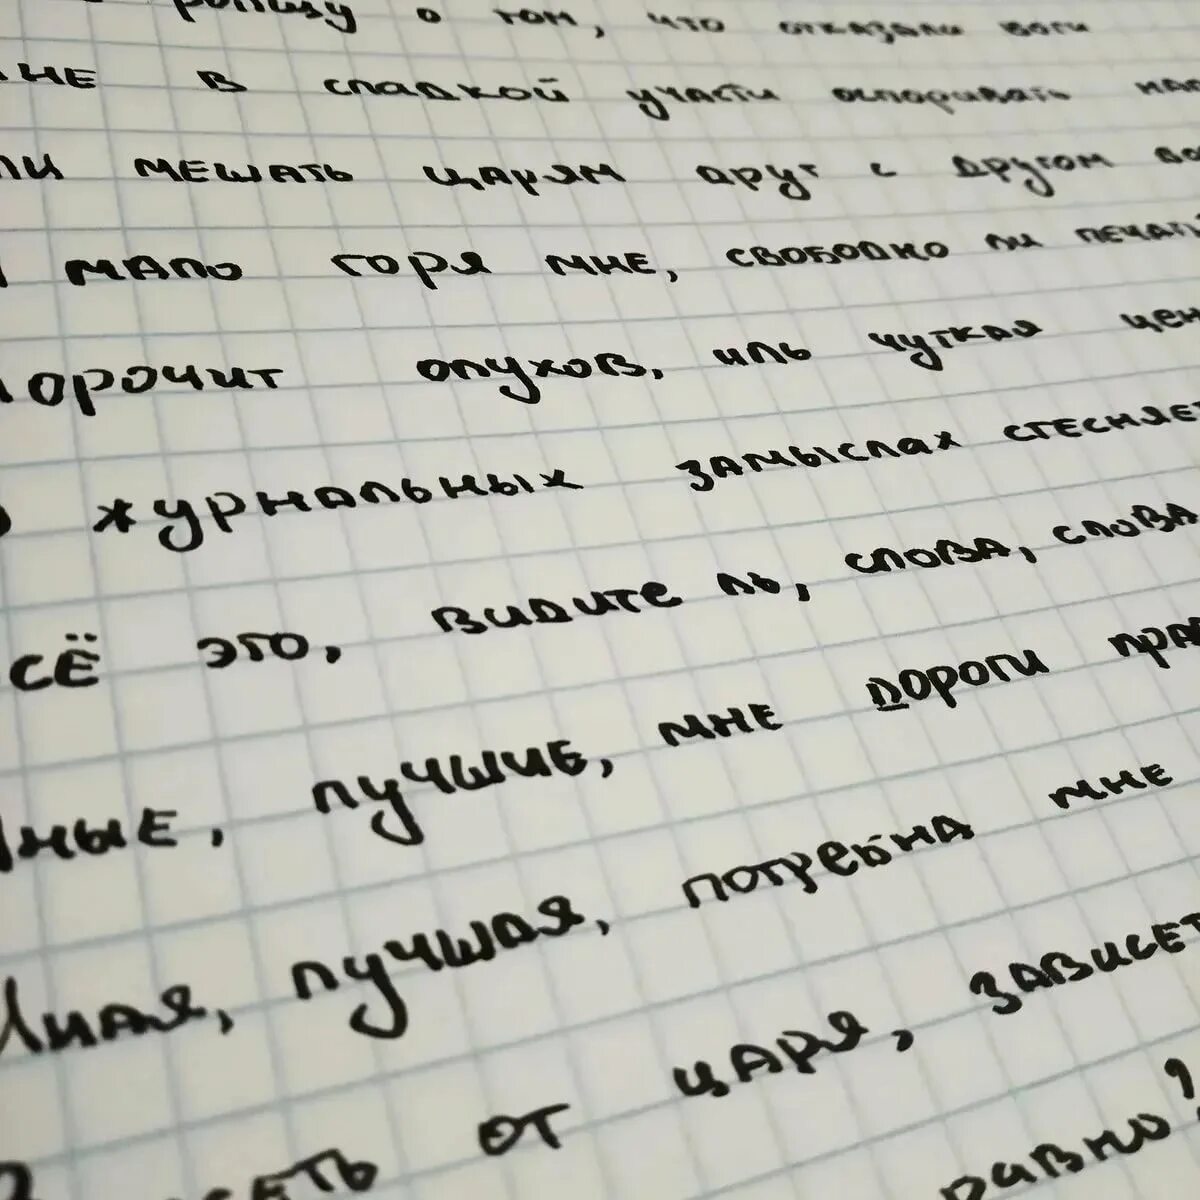 ропщу о том, что отказали боги
мне в сладкой участи оспоривать нал
ли мешать царям друг с другом вое
мало горя мне, свободно ли печать
морочит олухов, иль чуткая цен
журнальных замыслах стесняет
сё это, видите ль, слова, слова
иные, лучшие, мне дороги пра
Иная, лучшая, потребна мне
сеть от царя, зависет
равно?